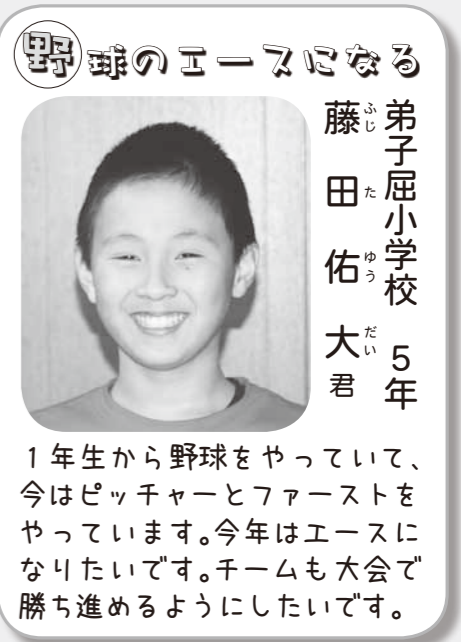 野球のエースになる
弟子屈小学校 5年
藤田佑大君
ふじ た ゆう だい
1年生から野球をやっていて、
今はピッチャーとファーストを
やっています。今年はエースに
なりたいです。チームも大会で
勝ち進めるようにしたいです。